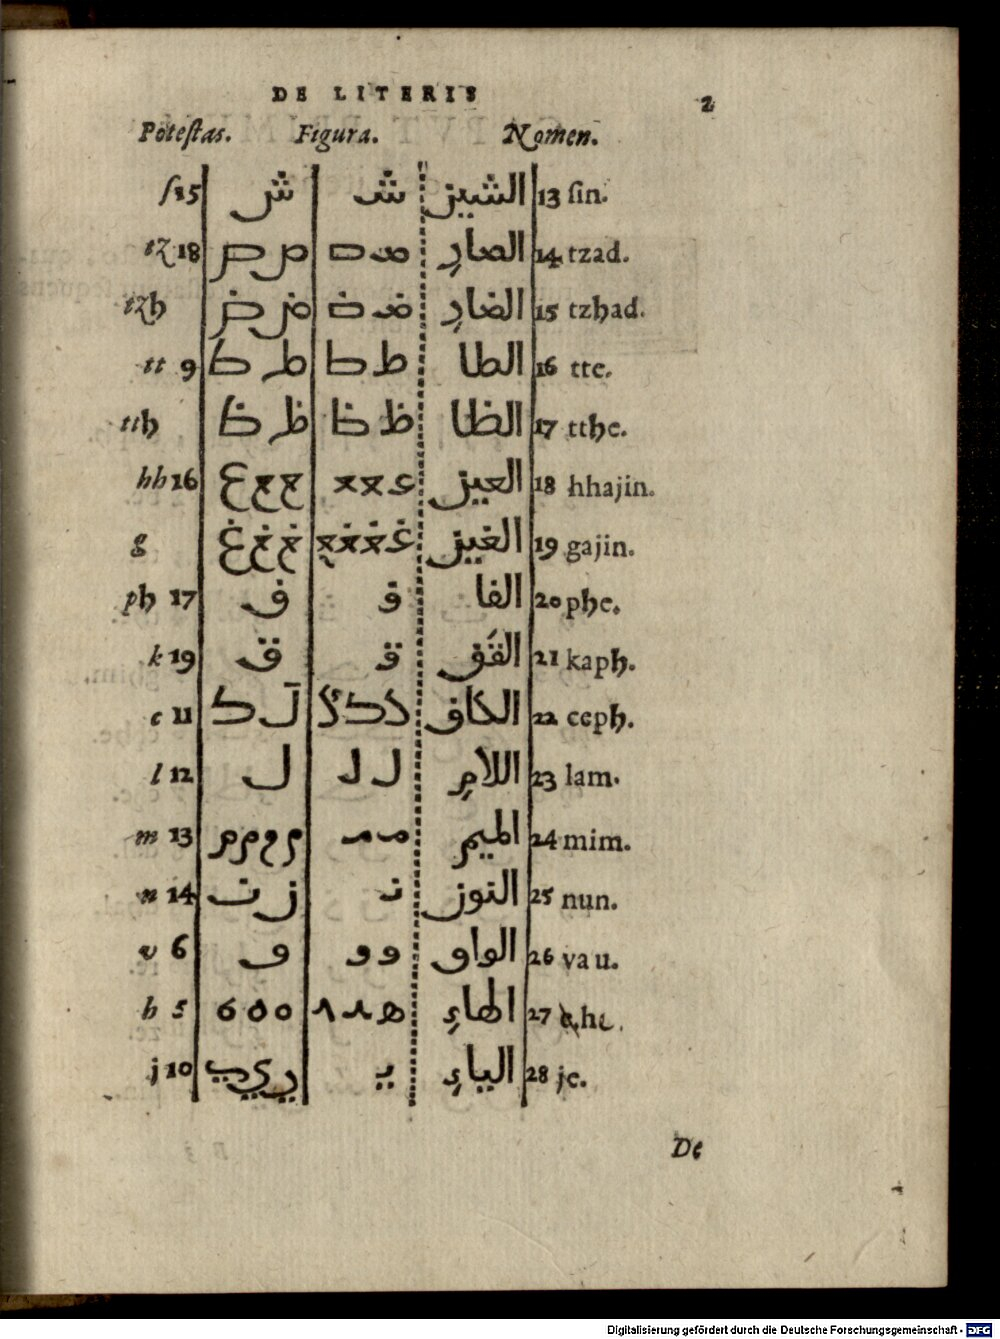 DE LITERIS 2
Poteſtas. Figura. Nomen.
ſ 15 ش ش الشين 13 ſin.
tz 18 ص ص الصاد 14 tzad.
tzh ض ض الضاد 15 tzhad.
tt 9 ط ط ط ط الطا 16 tte.
tth ظ ظ ظ ظ الظا 17 tthe.
hh 16 ع العين 18 hhajin.
g غ الغين 19 gajin.
ph 17 ف ف الفا 20 phe.
k 19 ق ق القق 21 kaph.
c 11 ك الكاف 22 ceph.
l 12 ل ل ل اللام 23 lam.
m 13 م الميم 24 mim.
n 14 ن ن النون 25 nun.
v 6 و و و الواو 26 vau.
h 5 ه الهاءِ 27 he.
j 10 ي الياءِ 28 je.
De
Digitalisierung gefördert durch die Deutsche Forschungsgemeinschaft - DFG